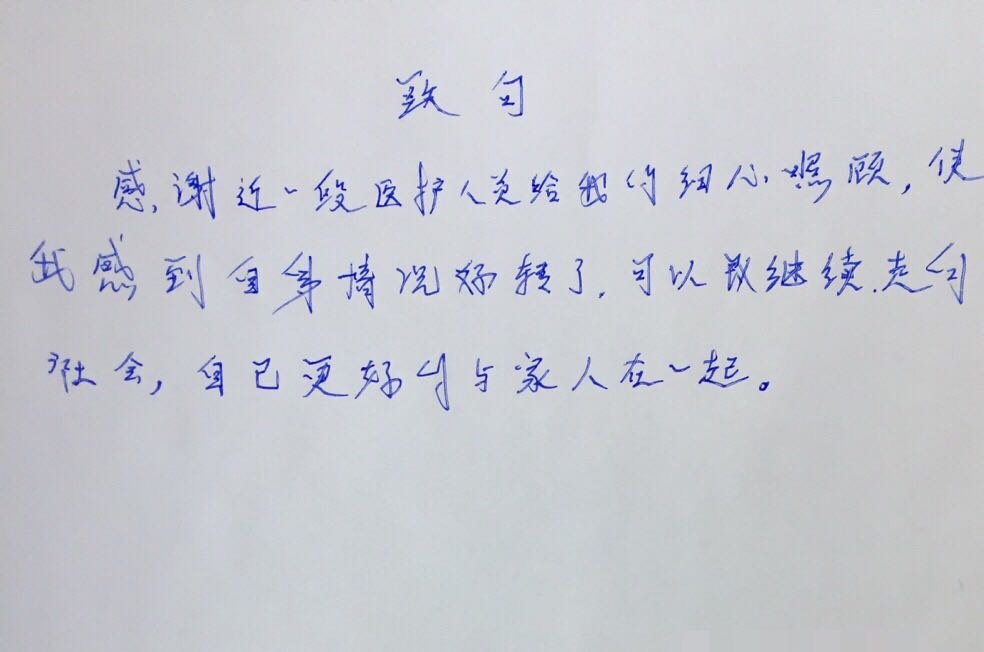 致句
感谢近一段医护人员给我的细心照顾，使
我感到自身情况好转了，可以继续走向
社会，自己更好的与家人在一起。